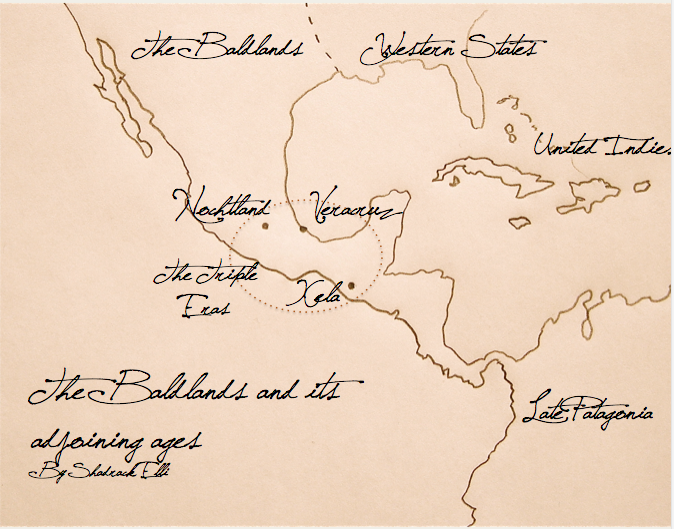 The Baldlands
Western States
United Indies
Nochtland
Veracruz
The Triple
Eras
Xela
The Baldlands and its
adjoining ages
Late Patagonia
By Shadrack Elli